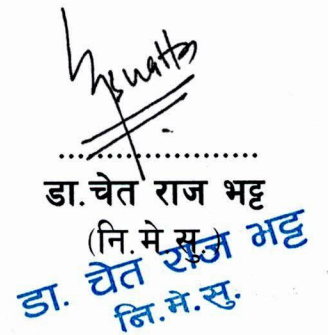 डा.चेत राज भट्ट
(नि.मे.सु.)
डा. चेत राज भट्ट
नि.मे.सु.